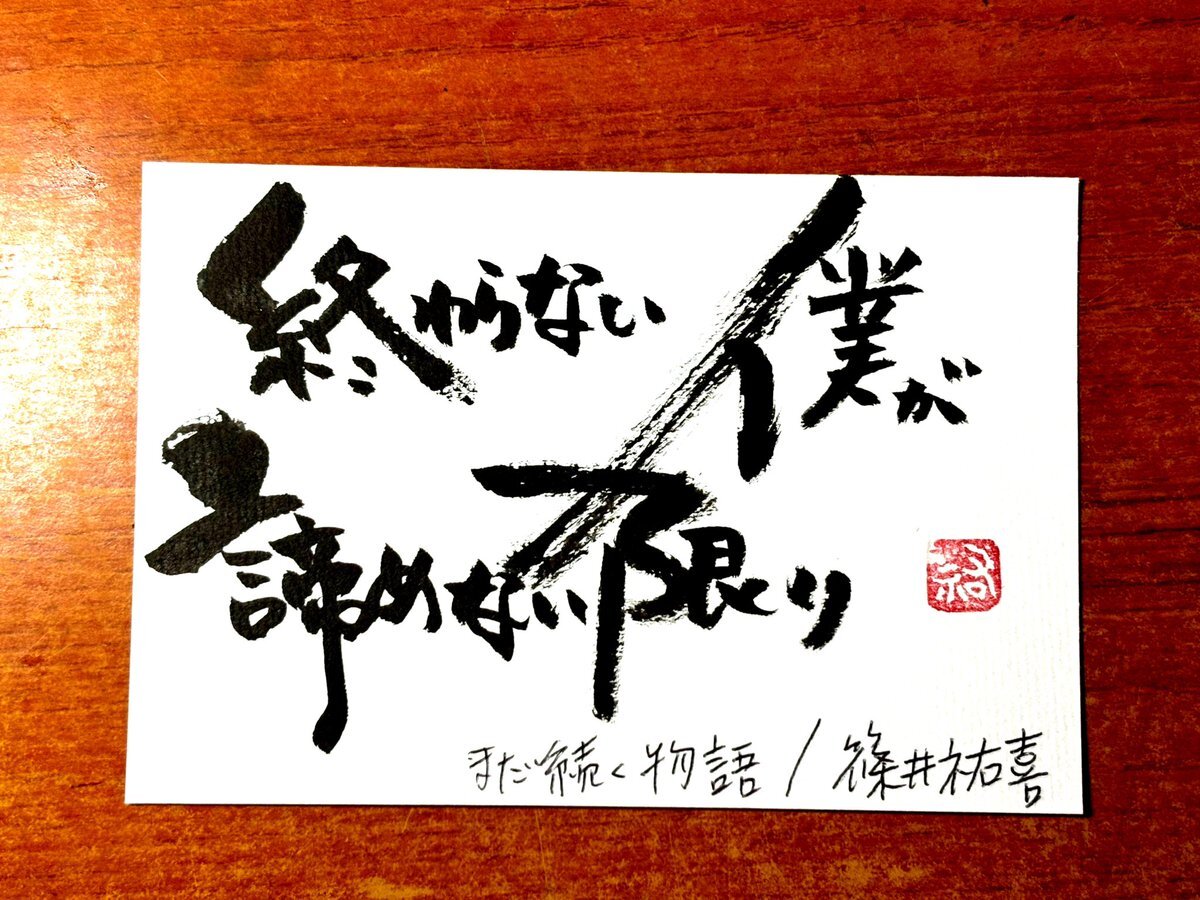 終わらない 僕が
諦めない限り
絡
まだ続く物語 / 篠井祐喜